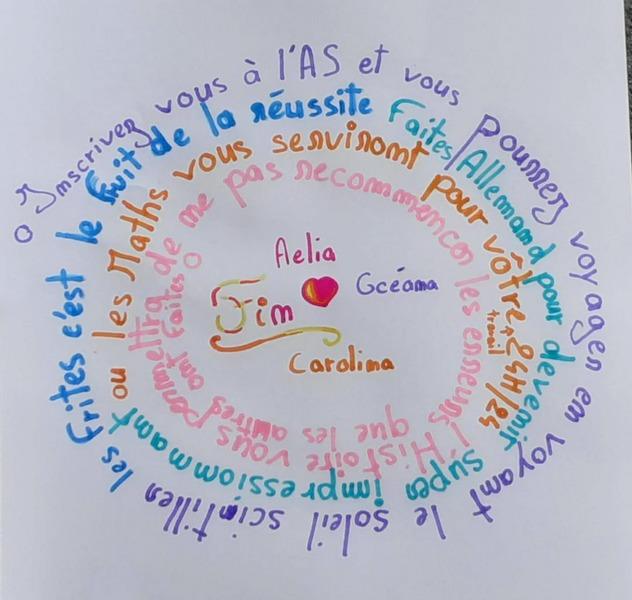 Inscrivez vous à l'AS et vous pourrez voyager en voyant le soleil scintiller
les Frites c'est le fruit de la réussite
Faites/Allemand pour devenir super impressionnant
ou les Maths vous serviront pour vôtre travail 24H/24
l'Histoire vous permettra de ne pas recommencer les erreurs que les autres ont faites
Aelia
Océana
Fin
Carolina